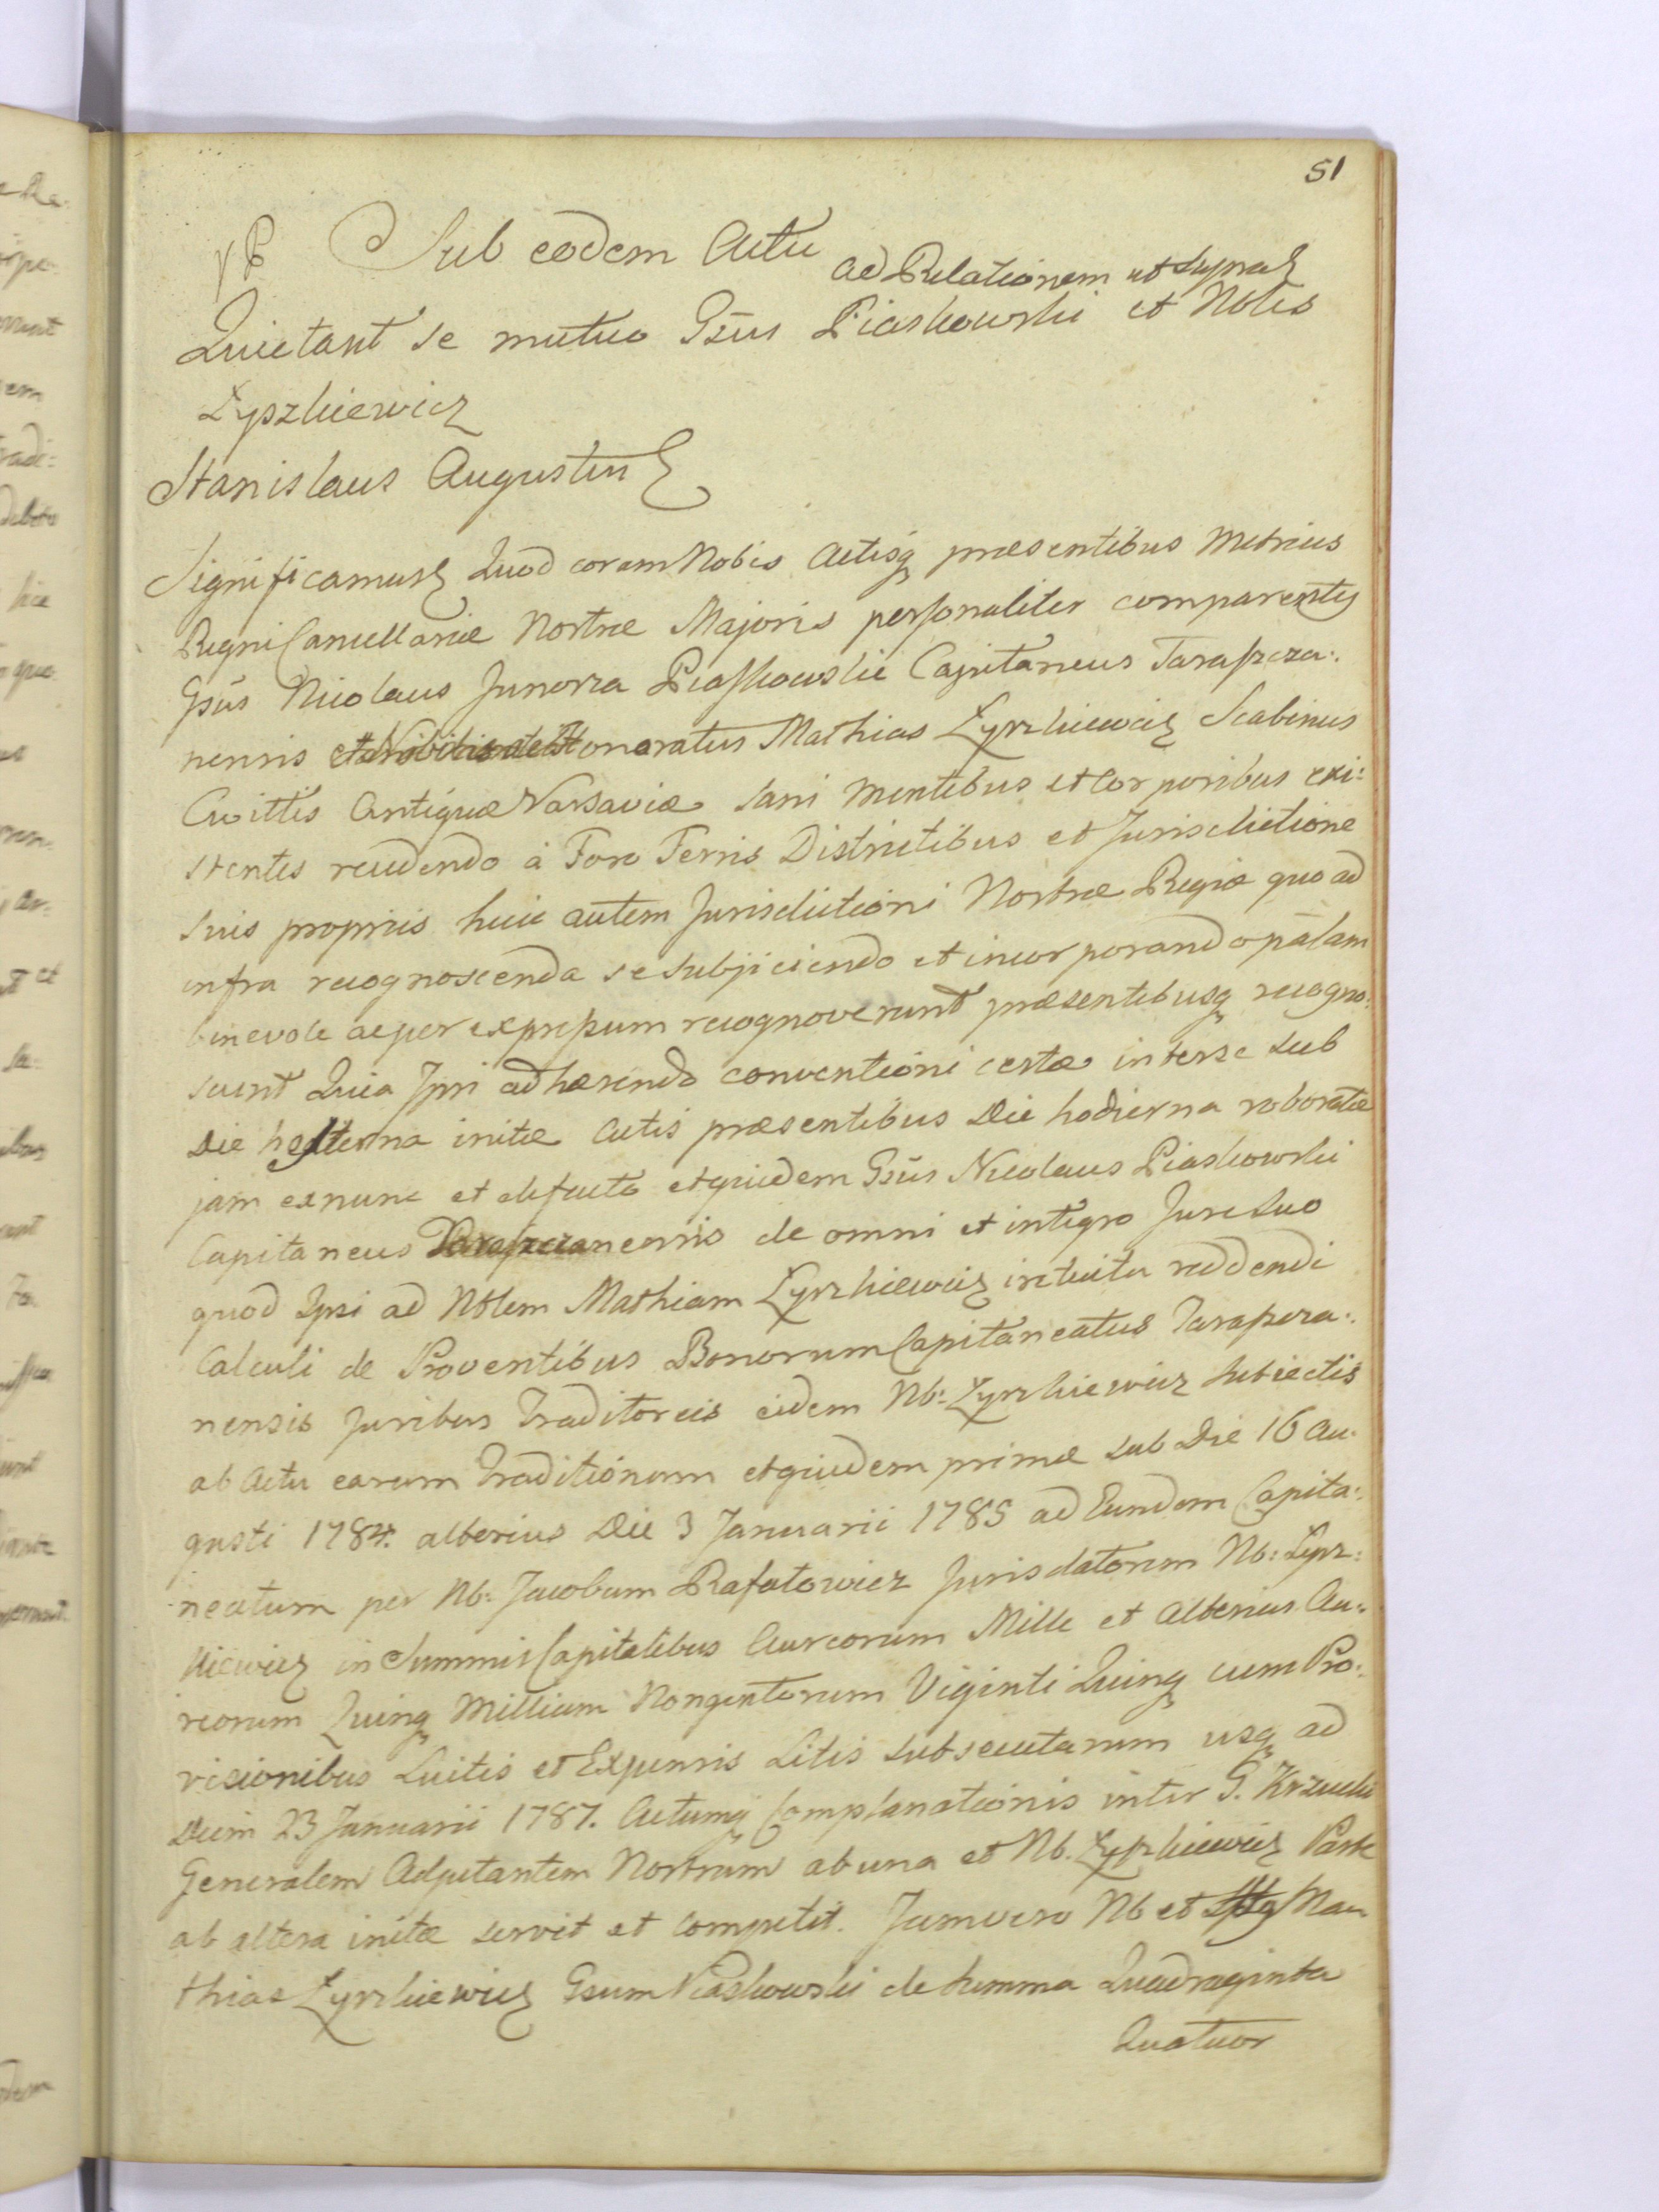 51
Sub eodem Actu
ad Relationem ut supra
Quietant se mutuo Gsus Piaskowski et Nobis
Łyszkiewicz
Stanislaus Augustus
Significamus Quod coram Nobis Actisq præsentibus Metrices
Regni Cancellariæ Nostræ Majoris personaliter comparentes
Gsūs Nicolaus Junosza Piaskowski Capitaneus Taraszcza:
nensis et Honoratus Mathias Łyszkiewicz Scabinus
Civittis Antiquæ Varsaviæ Sani Mentibus et Corporibus exi:
stentes recedendo à Foro Terris Districtibus et Jurisdictione
suis propriis huic autem Jurisdictioni Nostræ Regiæ quo ad
infra recognoscenda se subjiciendo et incorporando palam
benevole ac per expressum recognoverunt præsentibusq recogno:
scunt Quia Ipsi adhærendo conventioni certæ inter se sub
Die hesterna initæ Actis præsentibus Die hodierna roboratæ
jam ex nunc et de facto et quidem Gsūs Nicolaus Piaskowski
Capitaneus de omni et integro Jure suo
quod Ipsi ad Nblem Mathiam Łyszkiewicz intuitu reddendi
Calculi de Proventibus Bonorum Capitaneatus Taraszcza:
nensis Juribus Traditoreis eidem Nb: Łyszkiewicz subiectis
ab Actu earum Traditionum et quidem primæ sub Die 16 Au:
gusti 1784. alterius Die 3 Januarii 1785 ad Eundem Capita:
neatum per Nb: Jacobum Rafałowicz Jurisdatorem Nb: Łysz:
kiewicz in Summis Capitalibus Aureorum Mille et Alterius Au:
reorum Quinq Millium Nongentorum Viginti Quinq cum Pro:
visionibus Luitis et Expensis Litis subsecutarum usq ad
Diem 23 Januarii 1787. Actumq Complanationis inter G.
Generalem Adjutantem Nostrum ab una et Nb. Łyszkiewicz Parte
ab altera initæ servit et competit. Jam vero Nb et Ma
thias Łyszkiewicz Gsum Piaskowski de summa Quadraginta
Quatuor